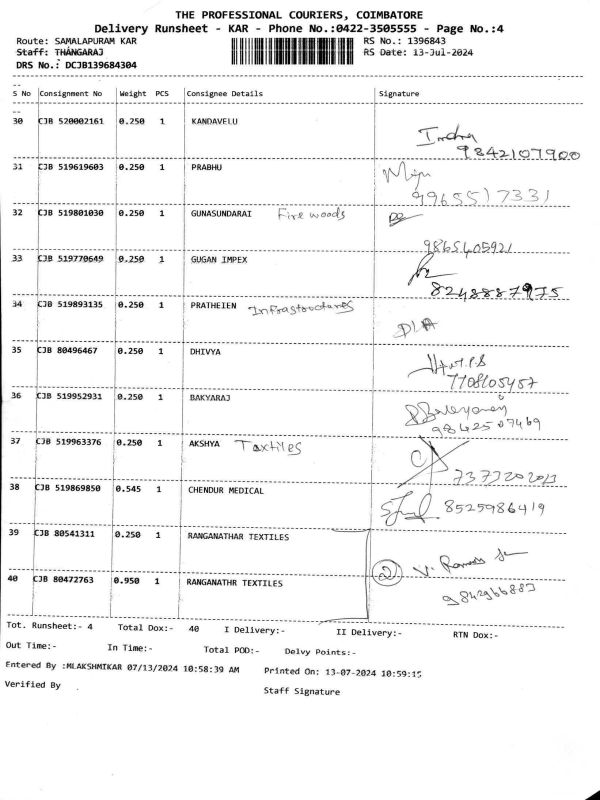 THE PROFESSIONAL COURIERS, COIMBATORE
Delivery Runsheet - KAR - Phone No.:0422-3505555 - Page No.:4
Route: SAMALAPURAM KAR RS No.: 1396843
Staff: THANGARAJ RS Date: 13-Jul-2024
DRS No.: DCJB139684304
S No Consignment No Weight PCS Consignee Details Signature
30 CJB 520002161 0.250 1 KANDAVELU Indra
9842107900
31 CJB 519619603 0.250 1 PRABHU
9965517331
32 CJB 519801030 0.250 1 GUNASUNDARAI Fire woods
9865405921
33 CJB 519770649 0.250 1 GUGAN IMPEX
8248887975
34 CJB 519893135 0.250 1 PRATHEIEN Infrastructures
DLA
35 CJB 80496467 0.250 1 DHIVYA
7708605457
36 CJB 519952931 0.250 1 BAKYARAJ
9842507469
37 CJB 519963376 0.250 1 AKSHYA Textiles
7373202013
38 CJB 519869850 0.545 1 CHENDUR MEDICAL 8525986419
39 CJB 80541311 0.250 1 RANGANATHAR TEXTILES
2
40 CJB 80472763 0.950 1 RANGANATHR TEXTILES
9842966883
Tot. Runsheet:- 4 Total Dox:- 40 I Delivery:- II Delivery:- RTN Dox:-
Out Time:- In Time:- Total POD:- Delvy Points:-
Entered By :MLAKSHMIKAR 07/13/2024 10:58:39 AM Printed On: 13-07-2024 10:59:15
Verified By Staff Signature